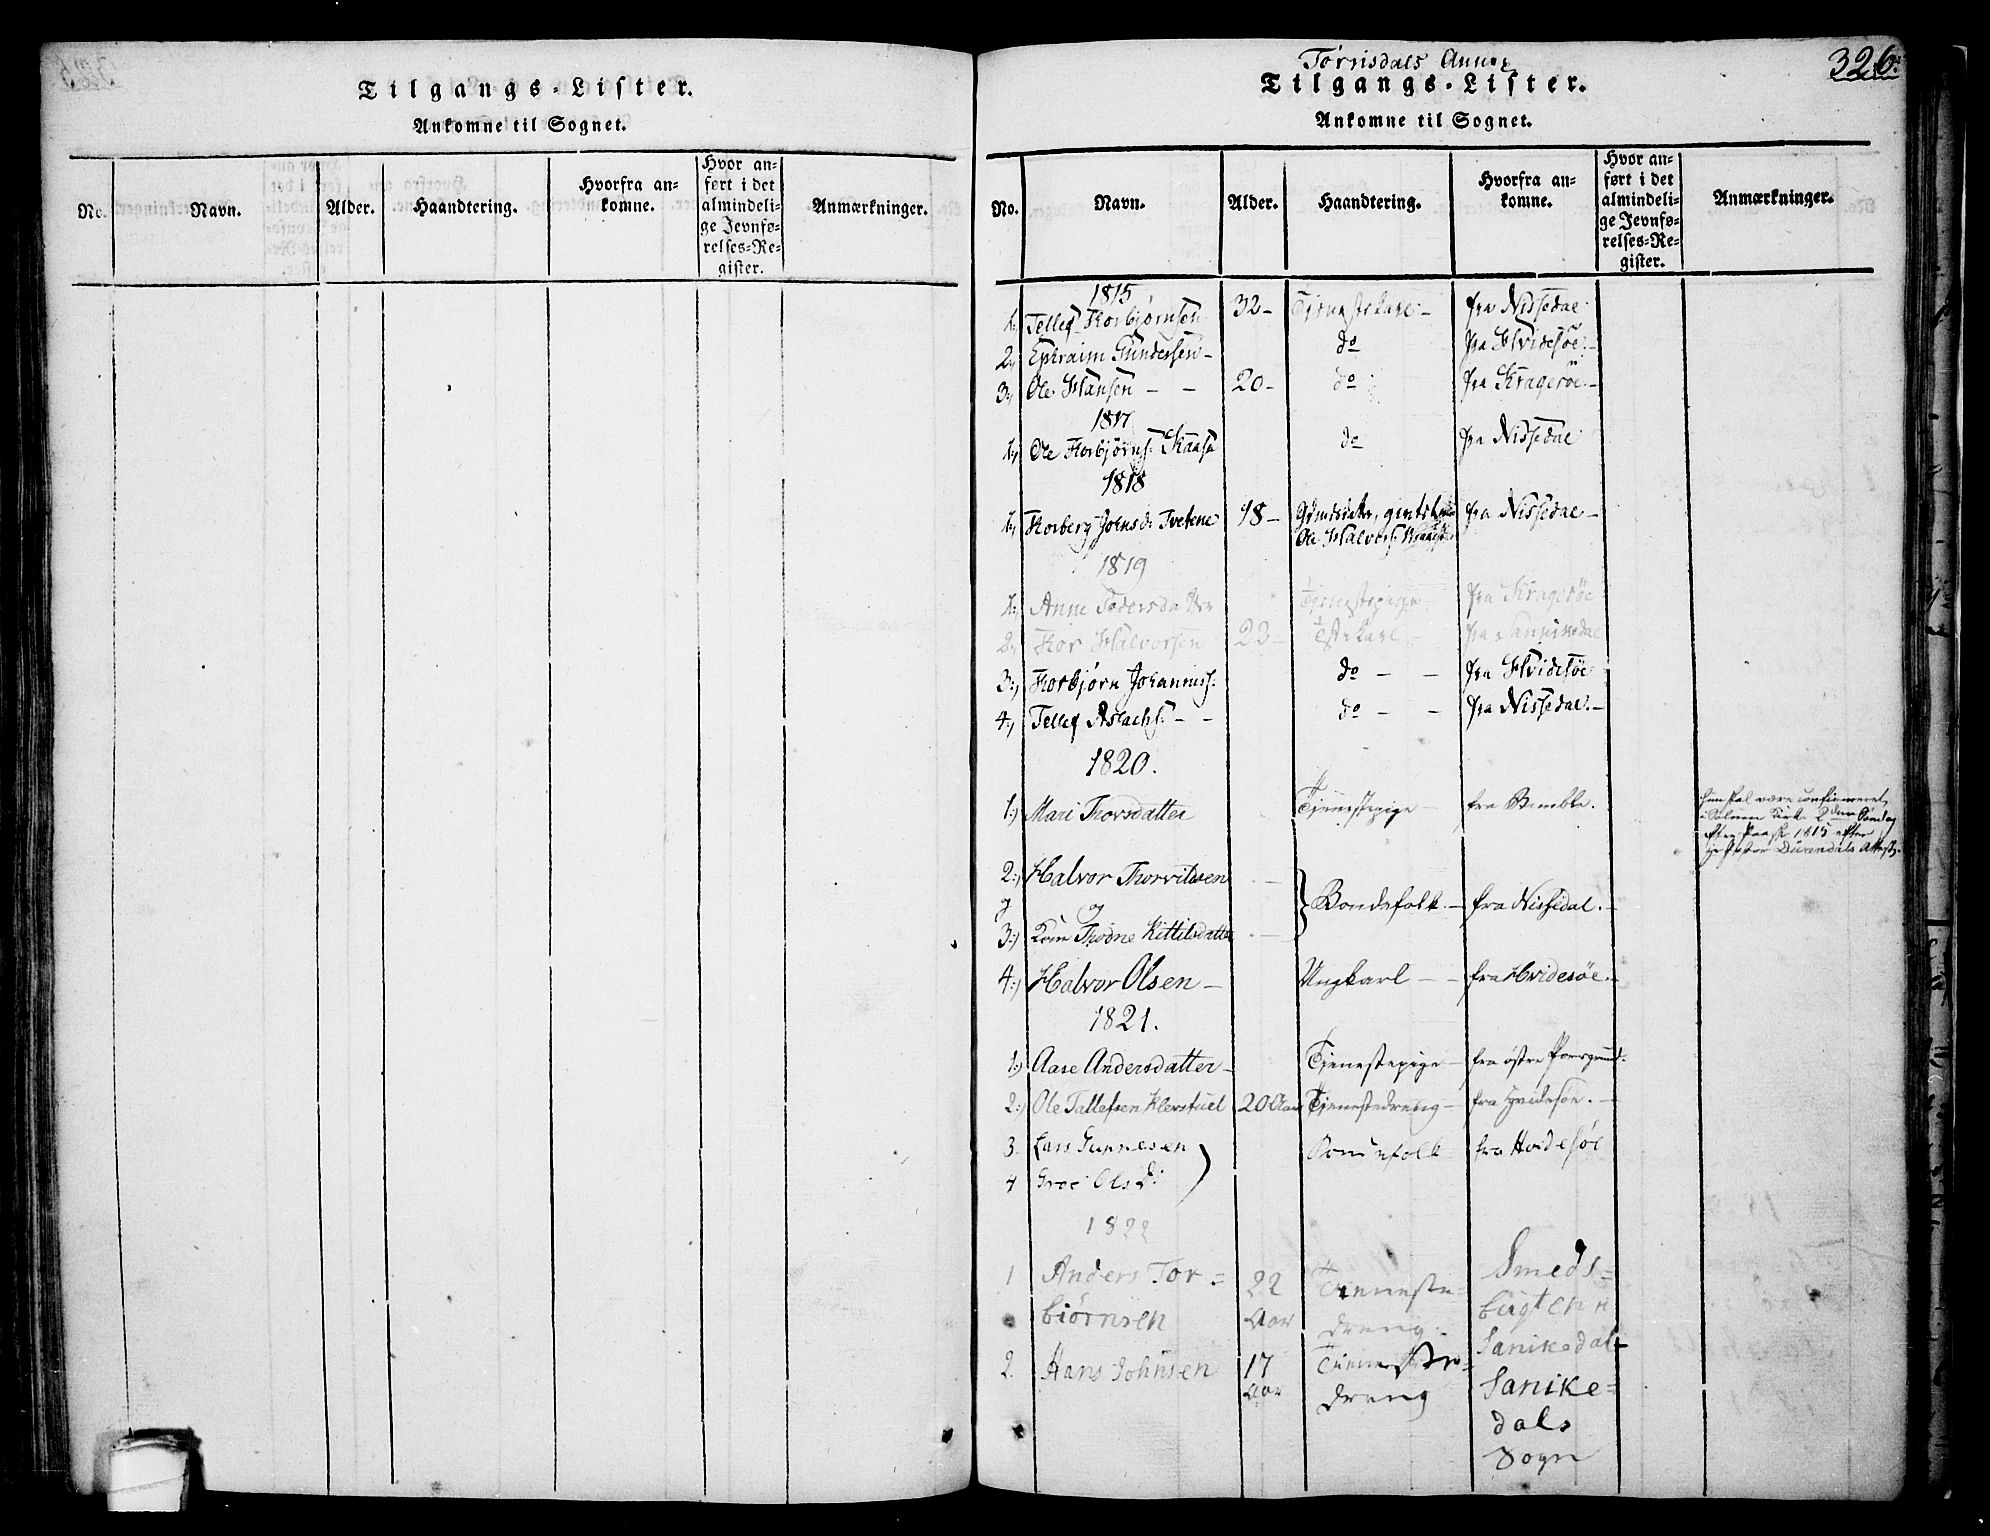 Tilgangs-Lister.
Ankomne til Sognet.
No.
Navn.
Alder.
Haandtering.
Hvorfra an-
komne.
Hvor an-
ført i det
almindeli-
ge Jevnfø-
relses-Re-
gister.
Anmærkninger.
Törrisdals Annex
326.
Tilgangs-Lister.
Ankomne til Sognet.
No.
Navn.
Alder.
Haandtering.
Hvorfra an-
komne.
Hvor an-
ført i det
almindeli-
ge Jevnfø-
relses-Re-
gister.
Anmærkninger.
1815
1:, Tellef Torbjørnsen 32- Tjenestekarl- fra Nissedal
2:, Ephraim Gundersen- do fra Hvidesöe.-
3:, Ole Hansen - - 20- do fra Krageröe-
1817
1:, Ole Torbjørns: Kaasa do fra Nissedal
1818
1:, Torberg Johnsd: Tvetene 18- fra Nissedal-
Ole Halvors:
1819
1:, Anne Pedersdatter Tjenestepige- fra Krageröe
2:, Tor Halvorsen 22- T:Karl - fra Sannikedal
3:, Torbjørn Johanness: do - - fra Hvidesöe
4:, Tellef Aslachs: - - do - - fra Nissedal.-
1820.
1:) Mari Thorsdatter Tjenestepige - fra Bamble. hun skal være confirmeret
i Kirke 2den Søndag
efter Paaske 1815 efter
Attest.
2:) Halvor Thorvildsen -
og og } Bondefolk.- fra Nissedal.-
3:) Kone Thodne Kittilsdatter -
4:) Halvor Olsen- Ungkarl - - fra Hvidesöe.-
1821.
1:) Aase Andersdatter- Tjenestepige- fra østre Porsgrund.
2:) Ole Tallefsen Klevstuel 20 Aar Tjenestedreng- fra Hvidesöe.-
3. Lars Gunnesen Bondefolk fra Hvidesöe
4 Groe Olsd:
1822
1 Anders Tor= 22 Tieneste= Smeds=
biørnsen Aar dreng. bugten i
Sanikedal-
2. Hans Johnsen 17 Tieneste= Sanike=
Aar dreng dals
Sogn